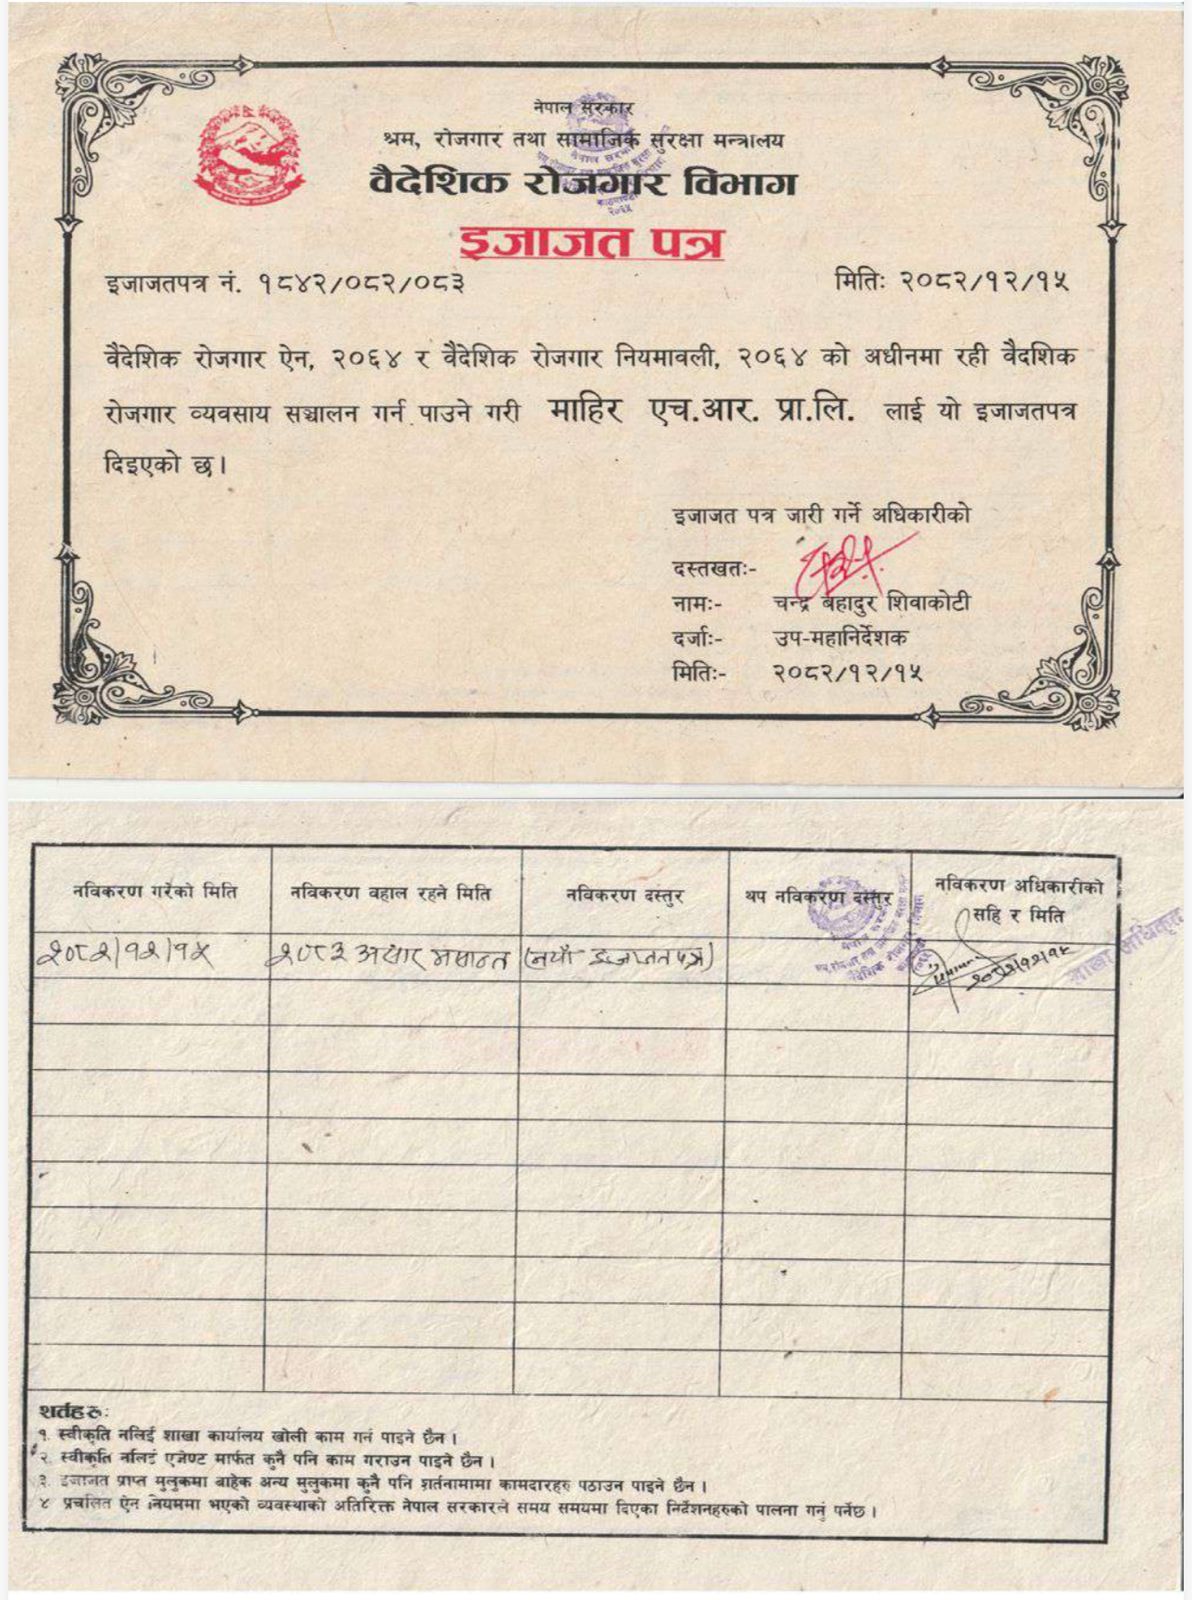 नेपाल सरकार
श्रम, रोजगार तथा सामाजिक सुरक्षा मन्त्रालय
वैदेशिक रोजगार विभाग
इजाजत पत्र
इजाजतपत्र नं. १८४२/०८२/०८३ मितिः २०८२/१२/१५
वैदेशिक रोजगार ऐन, २०६४ र वैदेशिक रोजगार नियमावली, २०६४ को अधीनमा रही वैदशिक
रोजगार व्यवसाय सञ्चालन गर्न पाउने गरी माहिर एच.आर. प्रा.लि. लाई यो इजाजतपत्र
दिइएको छ।
इजाजत पत्र जारी गर्ने अधिकारीको
दस्तखतः-
नामः- चन्द्र बहादुर शिवाकोटी
दर्जाः- उप-महानिर्देशक
मितिः- २०८२/१२/१५
नविकरण गरेको मिति नविकरण वहाल रहने मिति नविकरण दस्तुर थप नविकरण दस्तुर नविकरण अधिकारीको
सहि र मिति
२०८२/१२/१५ २०८३ असार मसान्त (नयाँ इजाजतपत्र) २०८२/१२/१५
शाखा अधिकृत
शर्तहरुः
१. स्वीकृति नलिई शाखा कार्यालय खोली काम गर्न पाइने छैन ।
२. स्वीकृति नलिई एजेण्ट मार्फत कुनै पनि काम गराउन पाइने छैन ।
३. इजाजत प्राप्त मुलुकमा बाहेक अन्य मुलुकमा कुनै पनि शर्तनामामा कामदारहरु पठाउन पाइने छैन ।
४ प्रचलित ऐन नियममा भएको व्यवस्थाको अतिरिक्त नेपाल सरकारले समय समयमा दिएका निर्देशनहरुको पालना गर्नु पर्नेछ ।